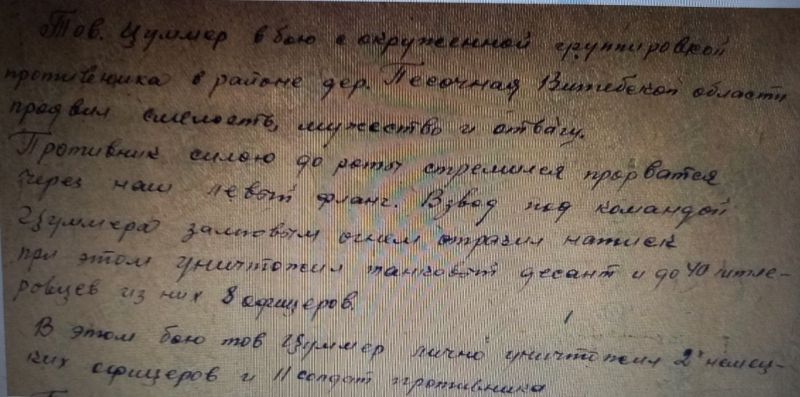 Тов. Цуммер в бою с окруженной группировкой
противника в районе дер. Песочная Витебской области
проявил смелость, мужество и отвагу.
Противник силою до роты стремился прорватся
через наш левый фланг. Взвод под командой
Цуммера залповым огнем отразил натиск
при этом уничтожил танковый десант и до 40 гитле-
ровцев из них 8 офицеров.
В этом бою тов Цуммер лично уничтожил 2 немец-
ких офицеров и 11 солдат противника